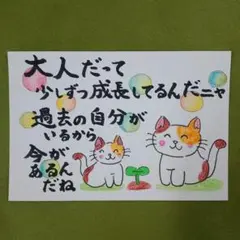 大人だって
少しずつ成長してるんだニャ
過去の自分が
いるから
今が
あるん
だね